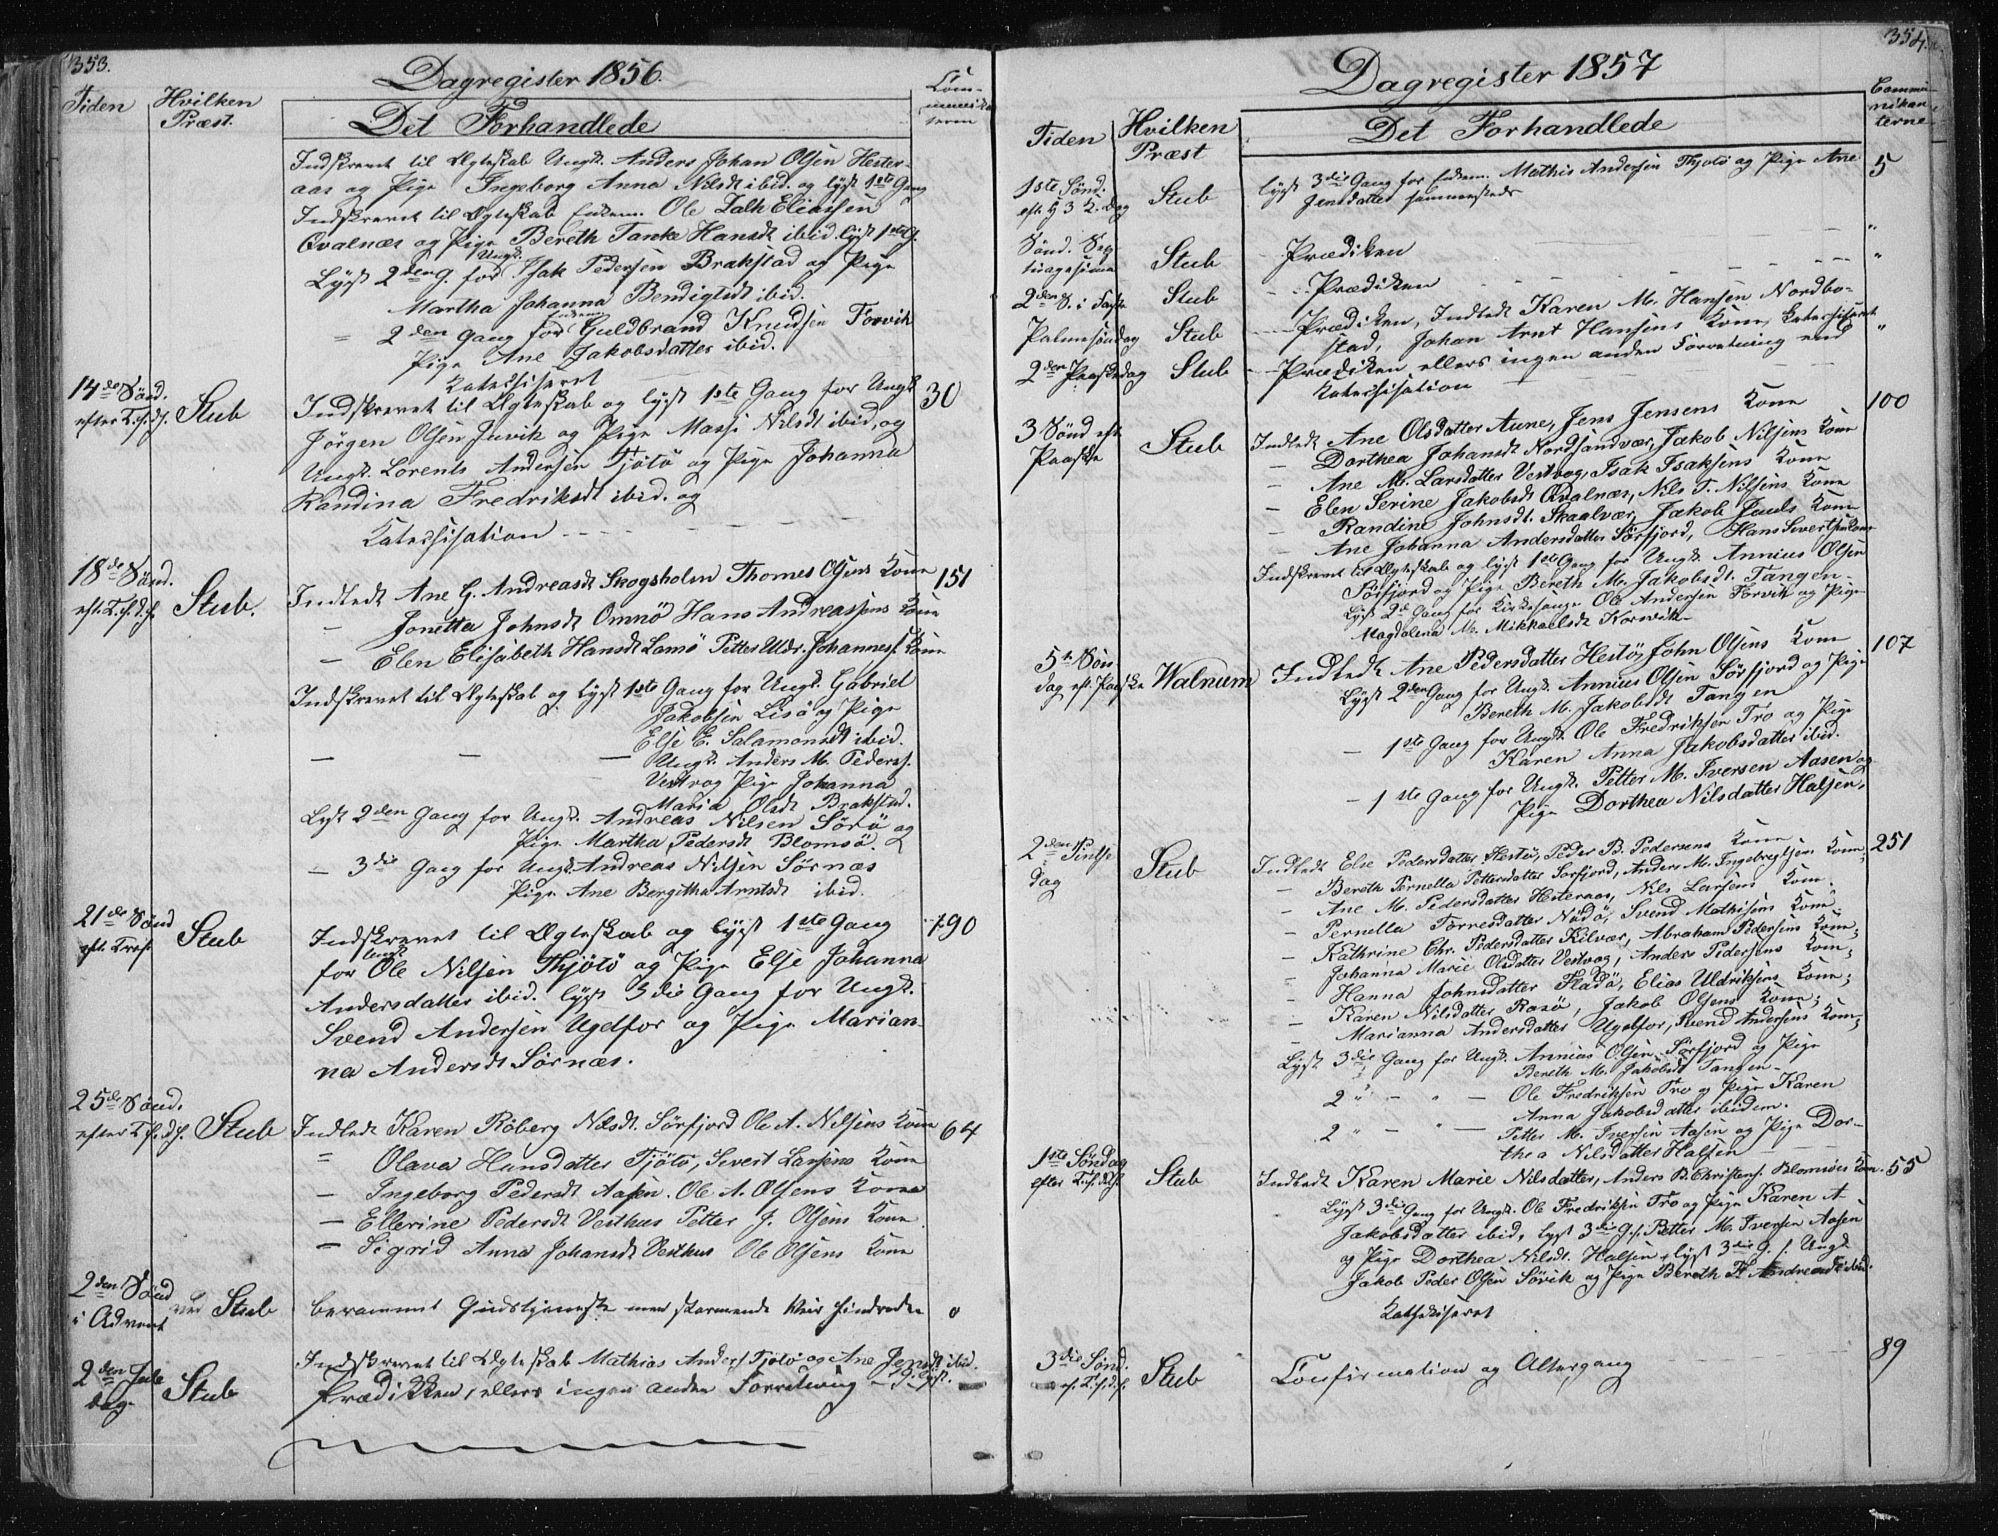 353.
Dagregister 1856.
Tiden
Hvilken
Præst.
Det Forhandlede
Com-
munika
terne
Indskrevet til Ægteskab Ungk. Anders Johan Olsen Hester-
aas og Pige Ingeborg Anna Nilsdt ibid. og lyst 1ste Gang
Indskrevet til Ægteskab Enkem. Ole Falk Eliassen
Qvalnæs og Pige Bereth Tanke Hansdt ibid. lyst 1ste G.
Lyst 2den G. for Ungk. Isak Pedersen Brakstad og Pige
Martha Johanna Bendigtsdt ibid.
= 2den Gang for Enkem. Guldbrand Knudsen Forvik
Pige Ane Jakobsdatter ibid.
Katechiseret
14de Sønd.
efter Tr.f.d.f.
Stub
Indskrevet til Ægteskab og lyst 1ste Gang for Ungk.
30
Jörgen Olsen Juvik og Pige Massi Nilsdt ibid. og
Ungk. Lorents Andersen Tjötö og Pige Johanna
Randina Fredriksdt ibid. og
Katechisation
18de Sønd.
eft. Tr.f.d.f.
Stub.
Indledt Ane G. Andreasdt Skogsholm Thomes Olsens Kone
151
— Jonetta Johnsdt Omnö Hans Andreassens Kone
— Elen Elisabeth Hansdt Lamö Petter Uldr. Johanness. Kone
Indskrevet til Ægteskab og lyst 1ste Gang for Ungk. Gabriel
Jakobsen Lisö og Pige
Else E. Salamonsdt ibid.
— — — Ungk. Anders M. Peders.
Vestvog Pige Johanna
Maria Olsdt Brakstad.
Lyst 2den Gang for Ungk. Andreas Nilsen Sörö og
Pige Martha Pedersdt Blomsö.
— 3die Gang for Ungk. Andreas Nilsen Sörnæs
Pige Ane Bergitha Arntsdt ibid.
21de Sønd
eft. Tref.
Stub
Indskrevet til Ægteskab og lyst 1ste Gang
190
for Ungk. Ole Nilsen Thjötö og Pige Else Johanna
Andersdatter ibid. lyst 3die Gang for Ungk.
Svend Andersen Ugelfor og Pige Marian-
na Andersdt Sörnæs.
25de Sønd.
efter Tr.f.d.f.
Stub
Indledt Karen Röberg Nilsdt. Sörfjord Ole A. Nilsens Kone
64
= Olava Hansdatter Tjötö, Severt Larsens Kone
— Ingeborg Pedersdt Aasen. Ole A. Olsens Kone
— Ellerine Pedersdt Vesthus Petter J. Olsens Kone
— Sigrid Anna Johansdt Vesthus Ole Olsens Kone
2den Sønd
i Advent
ved Stub
berammet Gudstjeneste men stormende Veir hindrede
0
2den Jule
dag
Stub
Indskrevet til Ægteskab Mathias Anders. Tjötö og Ane Jensdt ibid.
Prædikken, ellers ingen anden Forretning — 1 G. lyst.
354.
Dagregister 1857
Tiden
Hvilken
Præst
Det Forhandlede
Commu-
nikan-
terne
1ste Sønd.
eft. H 3 K. dag
Stub
lyst 3die Gang for Enkem. Mathis Andersen Thjötö og Pige Ane
Jensdatter sammesteds
5
Sønd. Sep-
tuagesima
Stub
— Prædiken
"
2den S. i Faste
Stub
— Prædiken
"
Palmesöndag
Stub
— Prædiken, Indledt Karen M. Hansen Nordbo-
stad, Johan Arnt Hansens Kone, Katechiseret
2den Paaskedag
Stub
— Prædiken ellers ingen anden Forretning end
Katechisation
"
3 Sønd eft
Paaske
Stub
Indledt Ane Olsdatter Aune, Jens Jensens Kone
100
— Dorthea Johansdt Nordsandvær, Jakob Nilsens Kone
— Ane M. Larsdatter Vestvog, Isak Isaksens Kone
— Elen Serine Jakobsdt Qvalnæs, Nils T. Nilsens Kone
— Randine Johnsdt. Skaalvær, Jakob Pauls Kone
— Ane Johanna Andersdatter Sörfjord, Hans Sivertsens Kone
Indskrevet til Ægteskab og lyst 1ste Gang for Ungk. Annius Olsen
Sörfjord og Pige Bereth M. Jakobsdt. Tangen —
Lyst 2d Gang for Kirkesanger Ole Andersen Forvik og Pige
Magdalena M. Mikkaelsdt Korsvik—
5te Søn
dag eft. Paaske
Walnum
Indledt Ane Pedersdatter Hestö, John Olsens Kone
107
Lyst 2den Gang for Ungk. Annius Olsen Sörfjord og Pige
Bereth M. Jakobsdt Tangen
— 1ste Gang for Ungk. Ole Fredriksen Tro og Pige
Karen Anna Jakobsdatter ibid.
— 1ste Gang for Ungk. Petter M. Iversen Aasen og
Pige Dorthea Nilsdatter Halsen,
2den Pintse
dag
Stub
Indledt Else Pedersdatter Hestö, Peder B. Pedersens Kone
251
— Bereth Pernella Pettersdatter Sörfjord, Anders M. Ingebrigtsens Kone;
— Ane M. Pedersdatter Hesteraas, Nils Larsens Kone.
— Pernella Torresdatter Nödö, Svend Mathisens Kone
— Kathrine Chr. Pedersdatter Kilvær, Abraham Pedersens Kone;
— Johanna Marie Olsdatter Vestvog, Anders Pedersens Kone;
— Hanna Johnsdatter Fladö, Elias Uldriksens Kone;
— Karen Nilsdatter Rosö, Jakob Olsens Kone;
— Marianna Andersdatter Ugelfor, Svend Andersens Kone;
Lyst 3die Gang for Ungk. Annias Olsen Sörfjord og Pige
Bereth M. Jakobsdt Tangen—
2 " — " — Ole Fredriksen Tro og Pige Karen
Anna Jakobsdatter ibidem.
2 " — " — Petter M. Iversen Aasen og Pige Dor-
thea Nilsdatter Halsen
1ste Søndag
efter Tr.f.d.f.
Stub
Indledt Karen Marie Nilsdatter, Anders B. Christens. Blomsöes Kone.
55
Lyst 3die Gang for Ungk. Ole Fredriksen Tro og Pige Karen A
Jakobsdatter ibid, lyst 3die G. f. Petter M. Iversen Aasen
og Pige Dorthea Nilsdt. Halsen, lyst 3die G. f. Ungk
Jakob Peder Olsen Sövik og Pige Bereth H Andreasdt ibid.
Katekiseret
3die Sønd.
ef. Tr.f.d.f.
Stub
Confirmation og Altergang
89